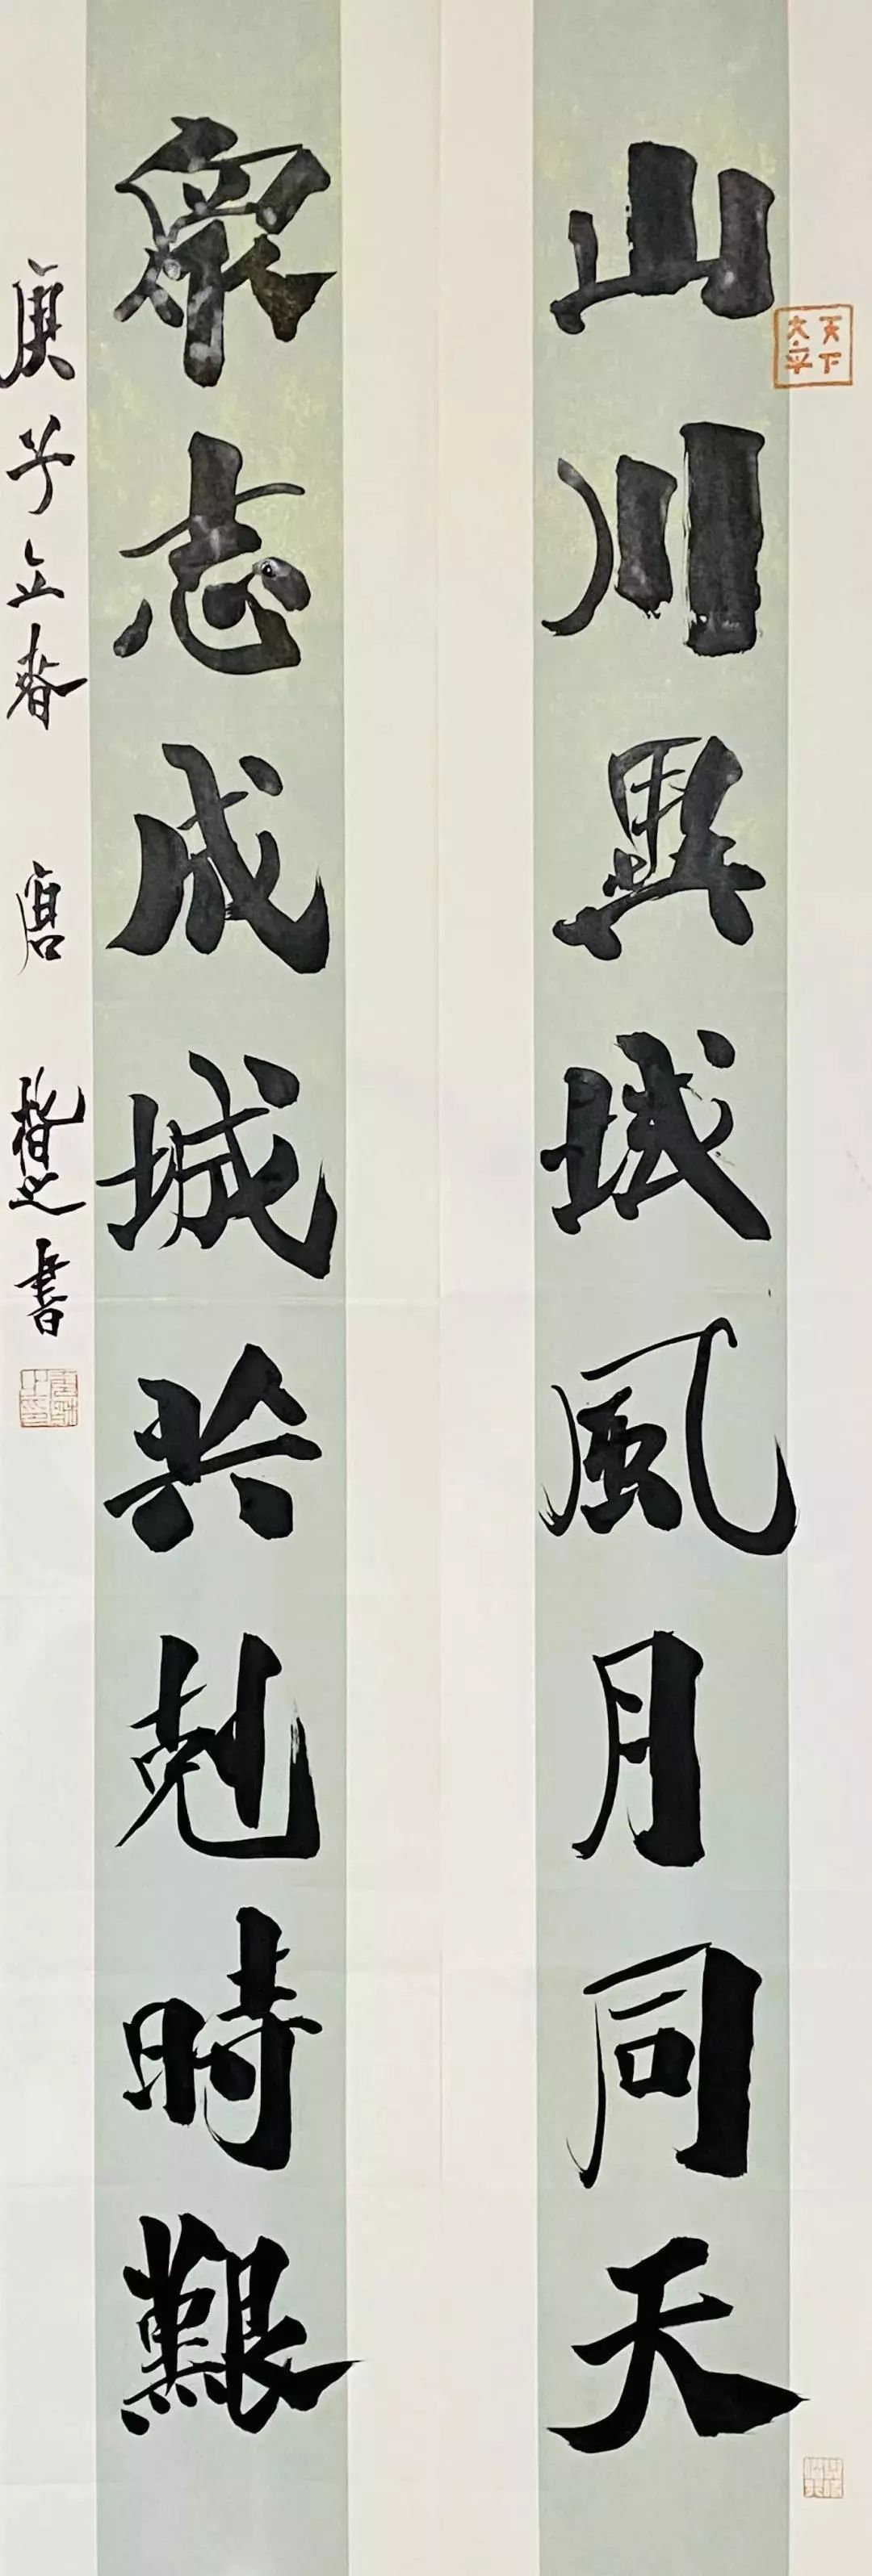 山川異域風月同天
衆志成城共剋時艱
庚子立春 唐楷之書
天下太平